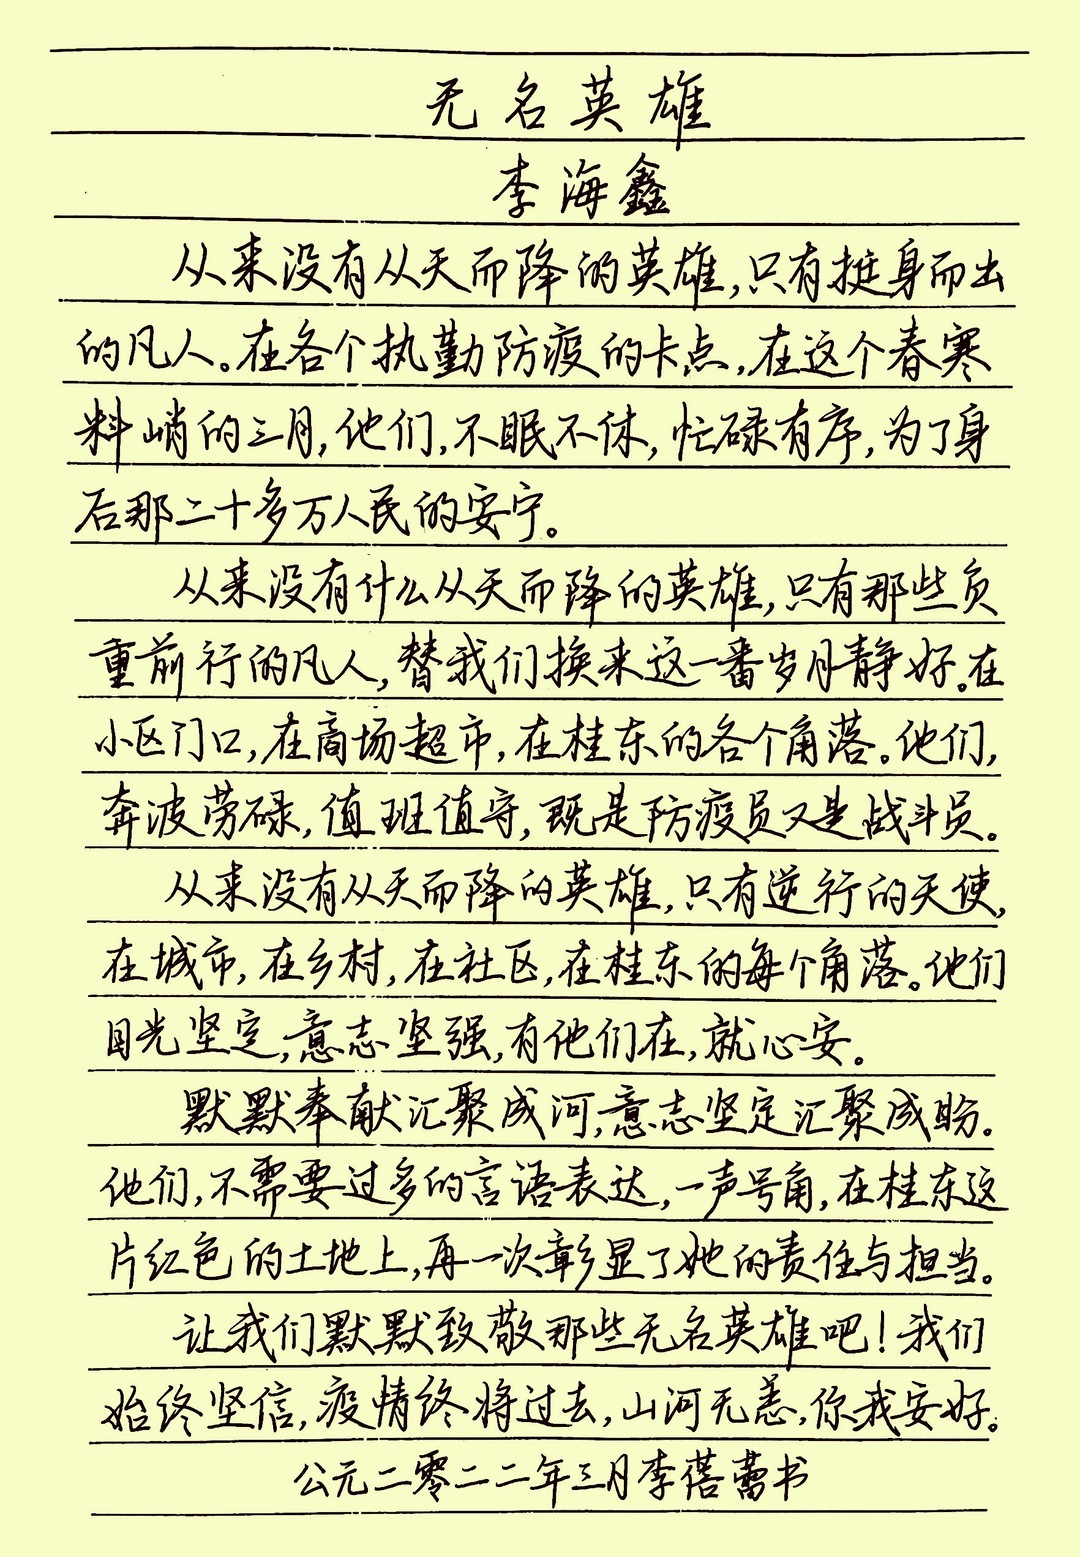 无名英雄
李海鑫
从来没有从天而降的英雄,只有挺身而出
的凡人。在各个执勤防疫的卡点,在这个春寒
料峭的三月,他们,不眠不休,忙碌有序,为了身
后那二十多万人民的安宁。
从来没有什么从天而降的英雄,只有那些负
重前行的凡人,替我们换来这一番岁月静好。在
小区门口,在商场超市,在桂东的各个角落。他们,
奔波劳碌,值班值守,既是防疫员又是战斗员。
从来没有从天而降的英雄,只有逆行的天使,
在城市,在乡村,在社区,在桂东的每个角落。他们
目光坚定,意志坚强,有他们在,就心安。
默默奉献汇聚成河,意志坚定汇聚成盼。
他们,不需要过多的言语表达,一声号角,在桂东这
片红色的土地上,再一次彰显了她的责任与担当。
让我们默默致敬那些无名英雄吧!我们
始终坚信,疫情终将过去,山河无恙,你我安好。
公元二零二二年三月李蓓蕾书